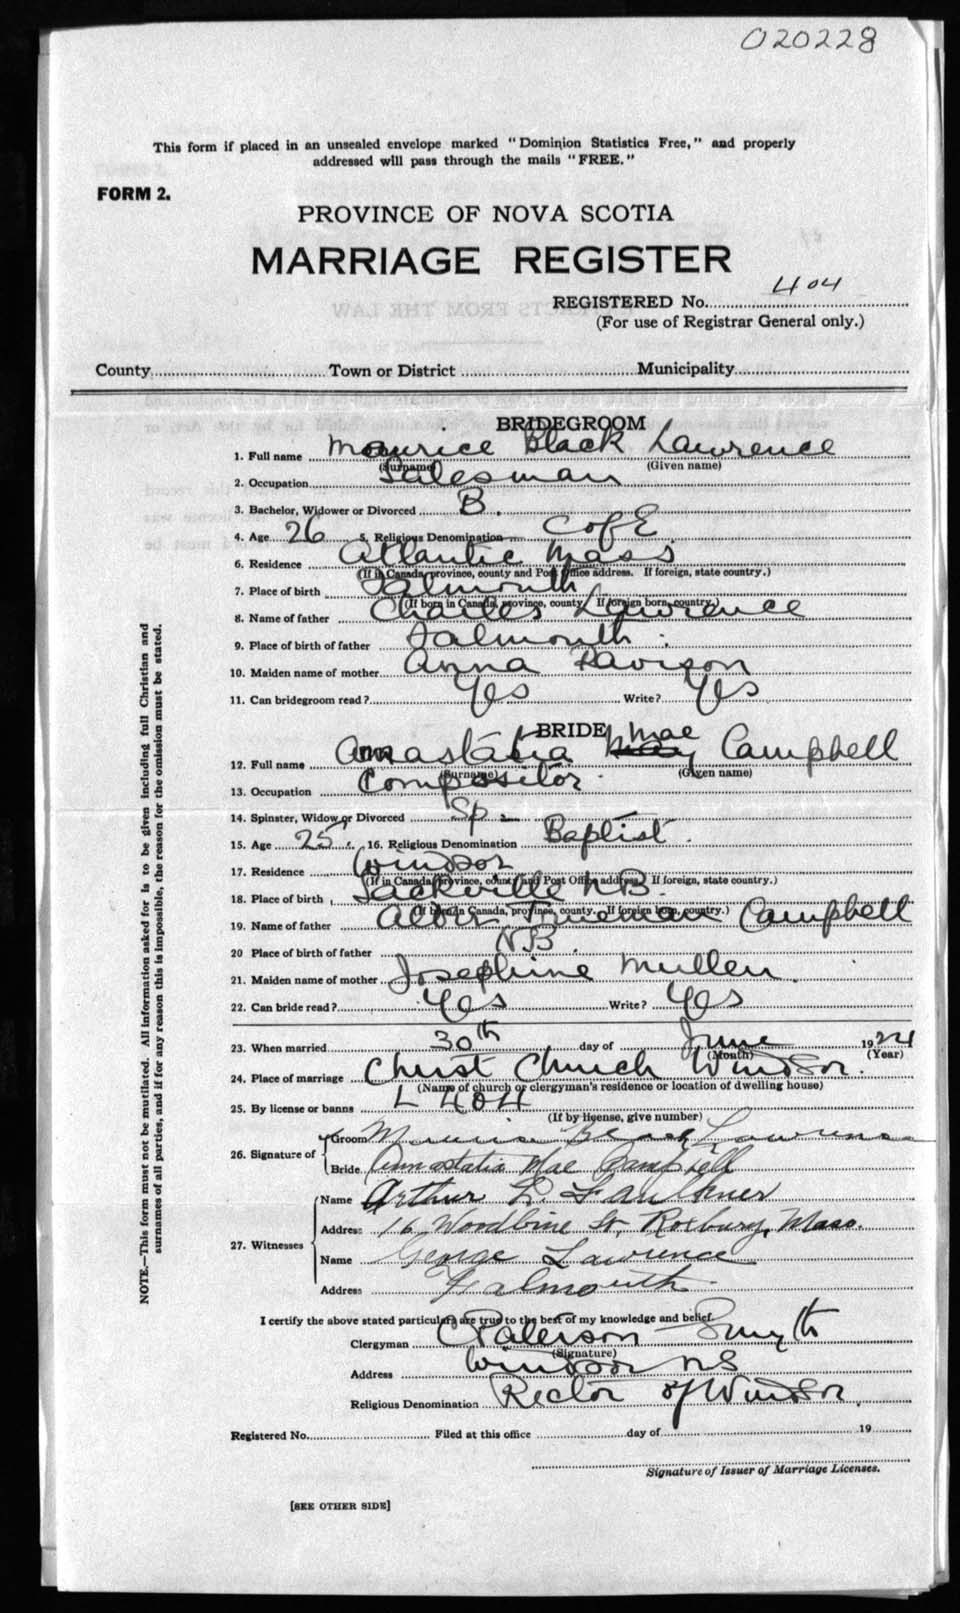 020228
This form if placed in an unsealed envelope marked "Dominion Statistics Free," and properly
addressed will pass through the mails "FREE."
FORM 2.
PROVINCE OF NOVA SCOTIA
MARRIAGE REGISTER
REGISTERED No. 404
(For use of Registrar General only.)
County Town or District Municipality
BRIDEGROOM
1. Full name Maurice Black Lawrence
(Surname) (Given name)
2. Occupation Salesman
3. Bachelor, Widower or Divorced B.
4. Age 26 5. Religious Denomination C of E
6. Residence Atlantic Mass
(If in Canada, province, county and Post Office address. If foreign, state country.)
7. Place of birth Falmouth
(If born in Canada, province, county. If foreign born, country.)
8. Name of father Charles Lawrence
9. Place of birth of father Falmouth
10. Maiden name of mother Anna Davison
11. Can bridegroom read? Yes Write? Yes
BRIDE
12. Full name Anastatia Mae Campbell
(Surname) (Given name)
13. Occupation Compositor
14. Spinster, Widow or Divorced Sp
15. Age 25 16. Religious Denomination Baptist
17. Residence Windsor
(If in Canada, province, county and Post Office address. If foreign, state country.)
18. Place of birth Sackville N.B.
(If born in Canada, province, county. If foreign born, country.)
19. Name of father Campbell
20 Place of birth of father N.B.
21. Maiden name of mother Josephine Mullen
22. Can bride read? Yes Write? Yes
23. When married 30th day of June 1924
(Month) (Year)
24. Place of marriage Christ Church Windsor.
(Name of church or clergyman's residence or location of dwelling house)
25. By license or banns L 404
(If by license, give number)
26. Signature of Groom Maurice Black Lawrence
Bride Annastatia Mae Campbell
27. Witnesses Name Arthur L. Faulkner
Address 16 Woodbine St, Roxbury, Mass.
Name George Lawrence
Address Falmouth
I certify the above stated particulars are true to the best of my knowledge and belief.
Clergyman C Paterson Smyth
(Signature)
Address Windsor NS
Religious Denomination Rector of Windsor
Registered No. Filed at this office day of 19
Signature of Issuer of Marriage Licenses.
[SEE OTHER SIDE]
NOTE.—This form must not be mutilated. All information asked for is to be given including full Christian and
surnames of all parties, and if for any reason this is impossible, the reason for the omission must be stated.